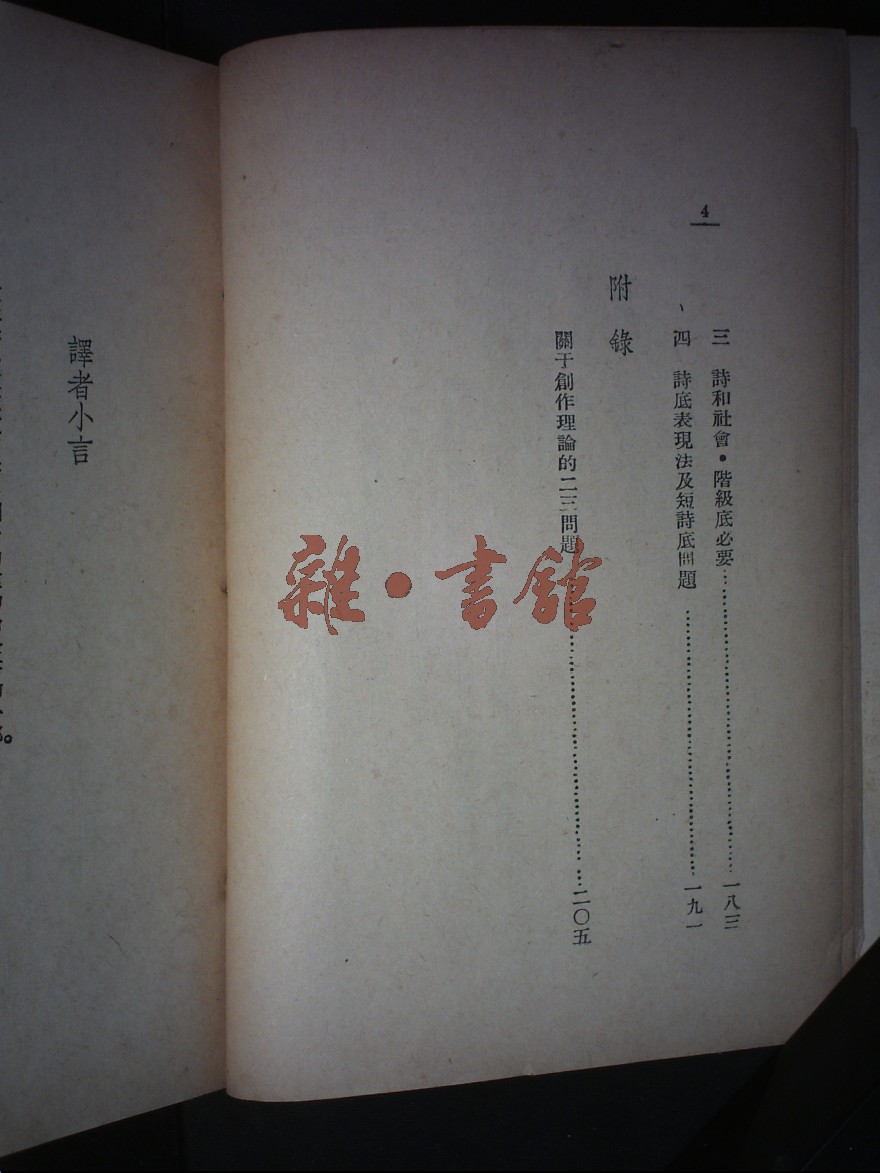 4
三　詩和社會・階級底必要…………一八三
四　詩底表現法及短詩底問題…………一九一
附錄
關于創作理論的二三問題…………二〇五
譯者小言
雜・書館